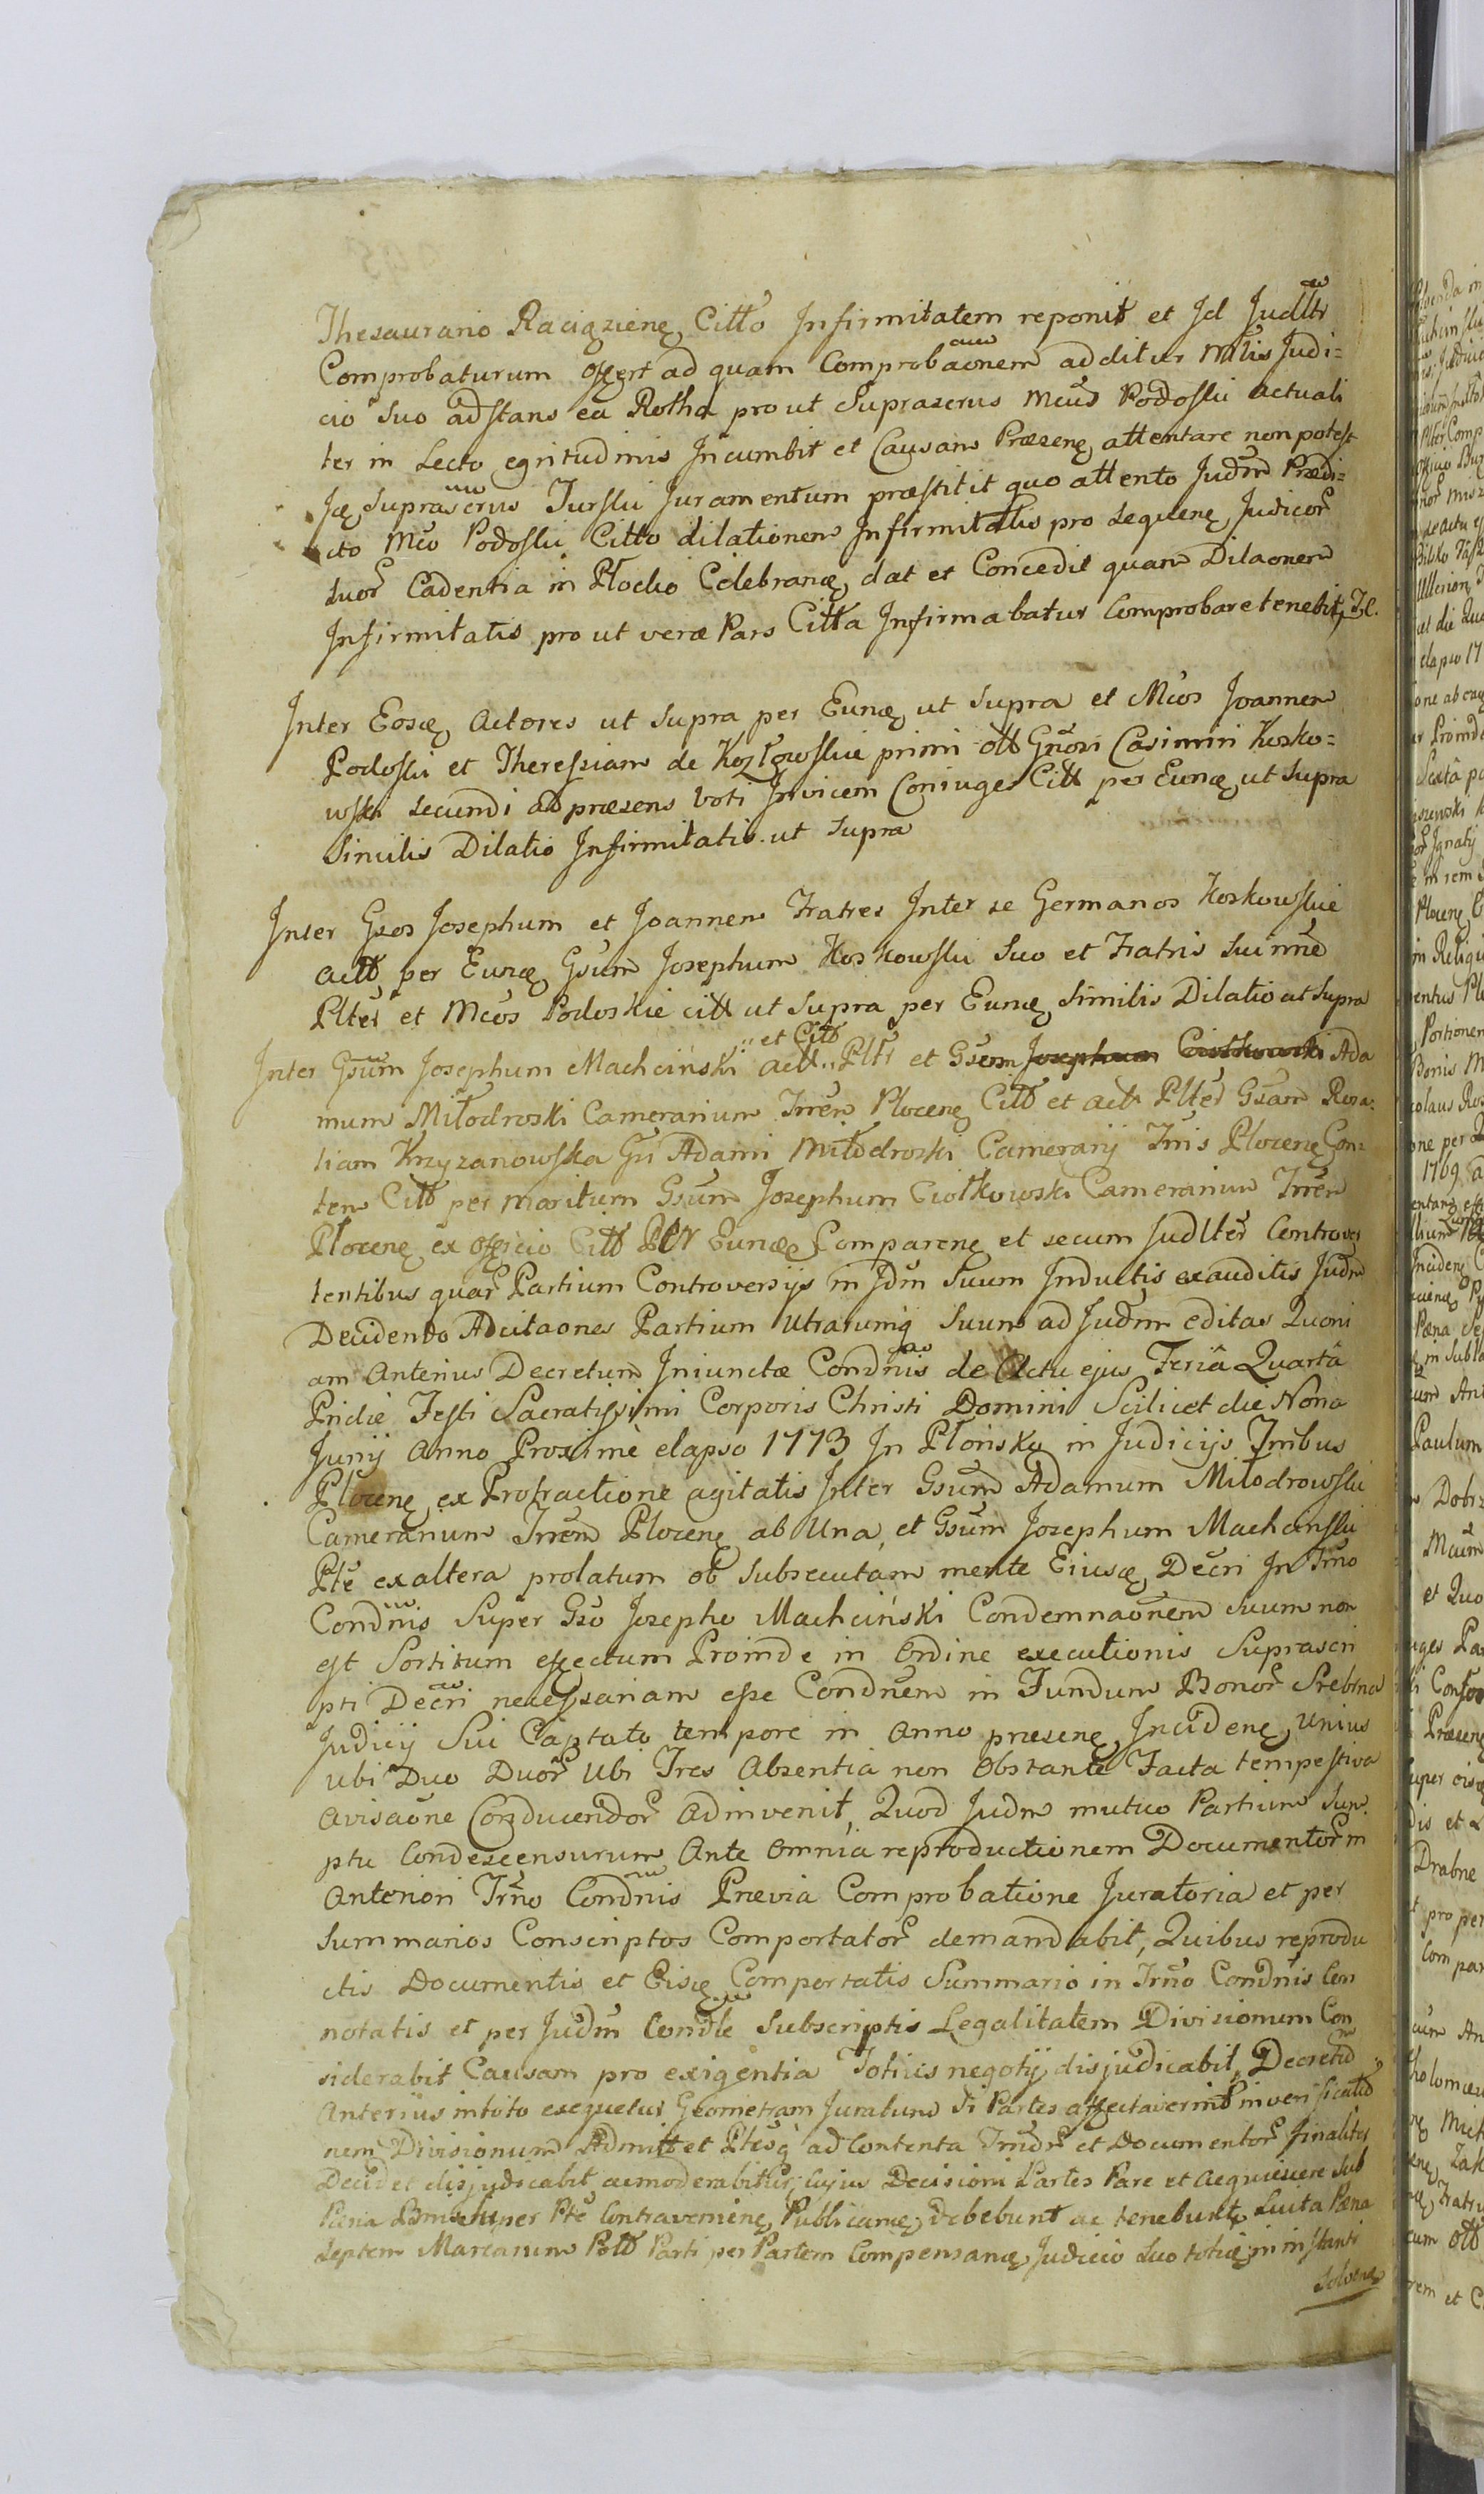 Thesaurario Raciązienę Citto Infirmitatem reponit et Id Judltr
Comprobaturum offert ad quam Comprobaonem additur Mtlis Judi=
cio Suo adstans ea Rotha prout Suprascrus Mcus Podoski actuali
ter in Lecto egritudinis Incumbit et Causam Præsenę attentare non potest
Suprascrus Turski Juramentum præstitit quo attento Judm Prædi=
cto Mco Podoski Citto dilationem Infirmitatis pro sequenę Judicor
Suor Cadentia in Płocko Celebranę dat et Concedit quam Dilaonem
Infirmitatis prout veræ Pars Citta Infirmabatur Comprobare tenebit,
Inter Eosę Actores ut Supra per Eunę ut Supra et Mcos Joannem
Podoski et Theressiam de Kozłowskie primi olt Gnosi Casimiri Kosko=
wski secundi ad præsens voti Invicem Coniuges Citt per Eunę ut Supra
Similis Dilatio Infirmitatis ut Supra
Inter Gsos Josephum et Joannem Fratres Inter se Germanos Koskowskie
actt per Eunę Gsum Josephum Koskowski Suo et Fratris Sui nne
Plter et Mcos Podoskie citt ut Supra per Eunę Similis Dilatio ut Supra
Inter Gsum Josephum Machciński actt ,, et Citt ,, Pltr et Gsum Josephum Ciołkowski Ada
mum Miłodroski Camerarium Trren Płocenę Citt et act Plter Gsam Rosa=
liam Krzyzanowska Gsi Adami Miłodroski Camerarij Trris Płocenę Con=
tem Citt per maritum Gsum Josephum Ciołkowski Camerarium Trren
Płocenę ex officio Citt Pltr Eunę Comparenę et secum Judlter Controver
tentibus quar Partium Controversijs in Jdm Suum Inductis exauditis Judm
Decidendo Adcitaones Partium Utrarumq Suum ad Judm editas Quoni
am Anterius Decretum Iniunctæ Condnis de Actu ejus Feriâ Quartâ
Pridie Festi Sacratissimi Corporis Christi Domini Scilicet die Nona
Junij Anno Proxime elapso 1773 In Płońsku in Judicijs Trribus
Płocenę ex Protractione agitatis Inter Gsum Adamum Miłodrowski
Camerarium Trrem Płocenę ab Una, et Gsum Josephum Machcinski
Pte ex altera prolatum ob Subsecutam mente Eiusę Decri In Trno
Condnis Super Gso Josepho Machciński Condemnaonem Suum non
est Sortitum effectum Proinde in Ordine executionis Suprascri
pti Decri necessariam esse Condnem in Fundum Bonor Srebrna
Judicij Sui Captato tempore in Anno præsenę Incidenę, Unius
Ubi Duo Duor Ubi Tres Absentia non Obstante Facta tempestiva
Avisaone Conducendor Adinvenit, Quod Judm mutuo Partium Sum
ptu Condescensurum Ante Omnia reproductionem Documentor in
Anteriori Trno Condnis Prævia Comprobatione Juratoria et per
Summarios Conscriptos Comportator demandabit, Quibus reprodu
ctis Documentis et Eisę Comportatis Summario in Trno Condnis Con
notatis et per Judm Condle Subscriptis Legalitatem Divisionum Con
siderabit Causam pro exigentia Totius negotij disjudicabit, Decretum
Anterius in toto exequetur Geometram Juratum Si Partes affectaverint in verificatio
nem Divisionum Admittet Ptesq ad Contenta Trmdr et Documentor finaliter
Decidet disjudicabit acmoderabitur, Cujus Decisioni Partes Pare et Acquiescere Sub
Pæna super Pte Contravenienę Publicanę debebunt ac tenebunt, Luita Pæna
Septem Marcarum Poltt Parti per Partem Compensanę Judicio Suo totię in instanti
Solvenę